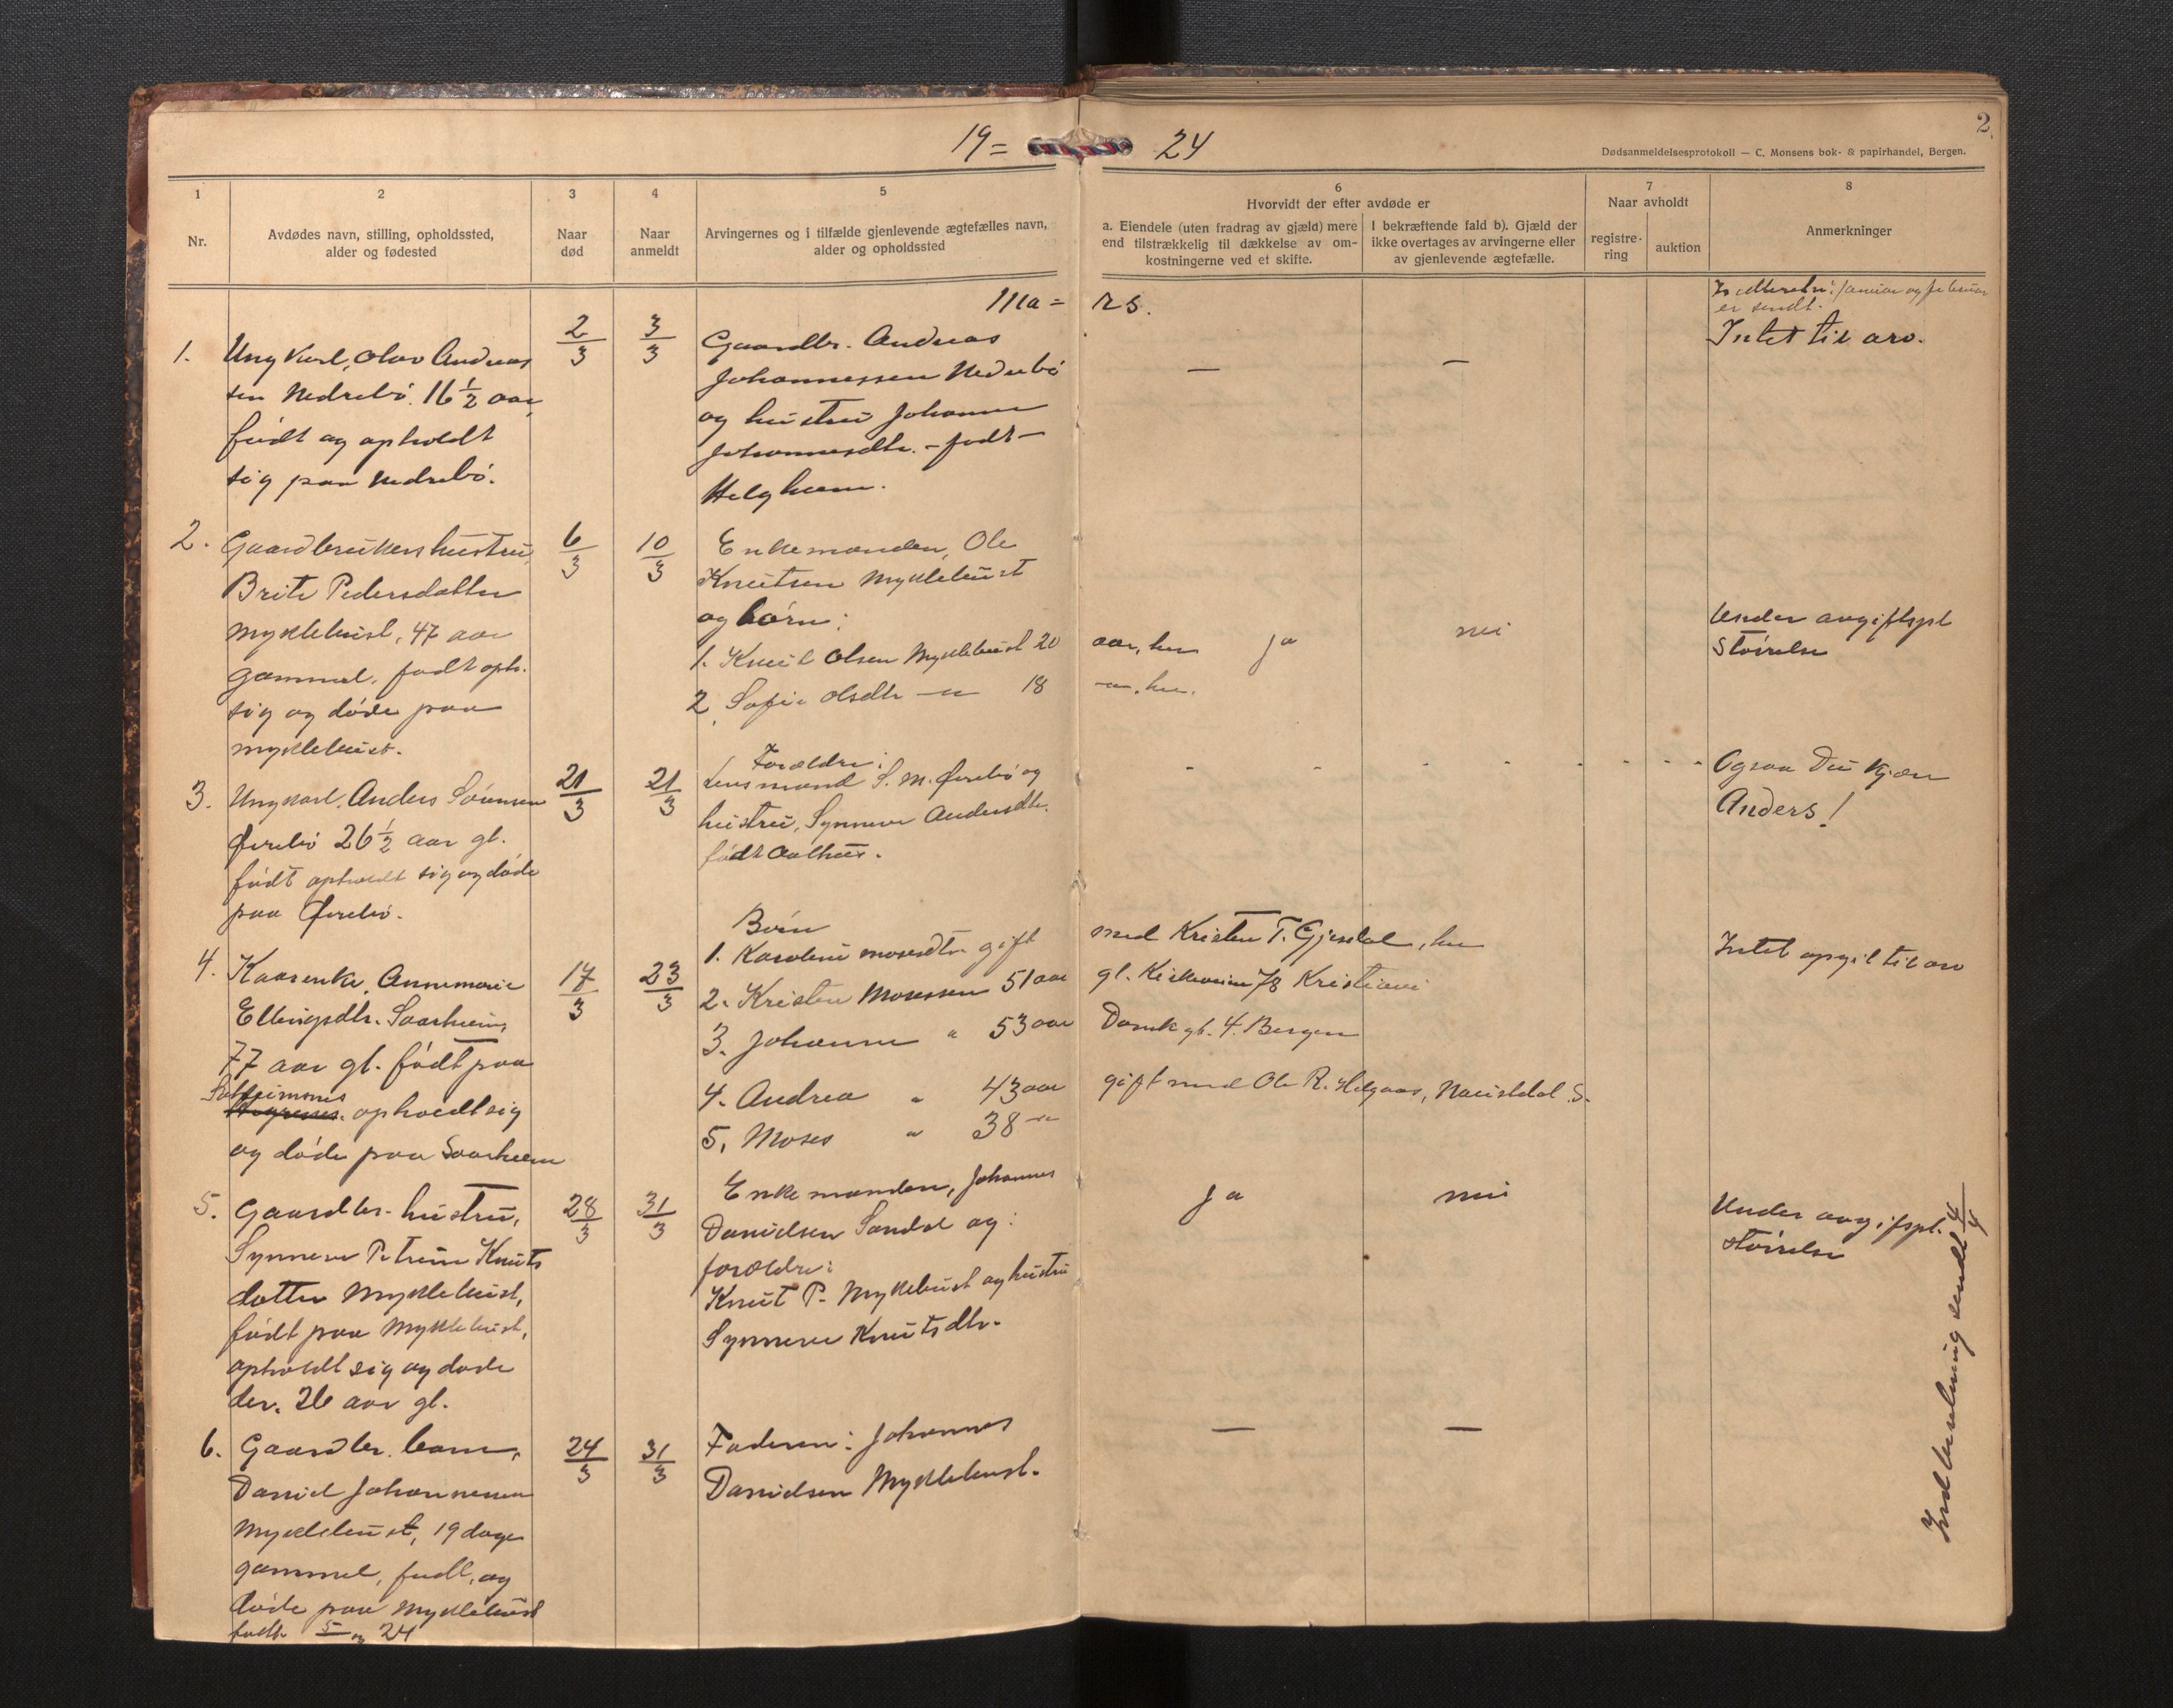 19=24
2.
Dødsanmeldelsesprotokoll — C. Monsens bok- & papirhandel, Bergen.
1
Nr.
2
Avdødes navn, stilling, opholdssted,
alder og fødested
3
Naar
død
4
Naar
anmeldt
5
Arvingernes og i tilfælde gjenlevende ægtefælles navn,
alder og opholdssted
6
Hvorvidt der efter avdøde er
a. Eiendele (uten fradrag av gjæld) mere
end tilstrækkelig til dækkelse av om-
kostningerne ved et skifte.
I bekræftende fald b). Gjæld der
ikke overtages av arvingerne eller
av gjenlevende ægtefælle.
7
Naar avholdt
registre-
ring
auktion
8
Anmerkninger
Ma=rs.
Januar og Februar
er sendt.
1.
Ungkarl, Olav Andreas
sen Nedrebö 16 1/2 aar,
född og opholdt
sig paa Nedrebö.
2/3
3/3
Gaardbr. Andreas
Johannessen Nedrebö
og hustru Johanne
Johannesdtr. - född -
Helgheim.
—
—
Intet til arv.
2.
Gaardbrukershustru,
Brite Pedersdatter
Myklebust, 47 aar
gammel, født oph.
sig og døde paa
Myklebust.
6/3
10/3
Enkemanden, Ole
Knutsen Myklebust
og börn:
1. Knut Olsen Myklebust 20 aar, her
2. Sofie Olsdtr —"— 18 —"—, her.
ja
nei
Under avgiftspl
Störrelse
3.
Ungkarl, Anders Sörensen
Ørebö 26 1/2 aar gl.
född opholdt sig og döde
paa Ørebö.
21/3
21/3
Forældre:
Lensmand S. M. Ørebö og
hustru, Synneve Andersdtr.
född Aalhus.
Ogsaa Du Kjære
Anders!
4.
Kaarenke, Annemarie
Ellingsdtr. Saarheim,
77 aar gl. födt paa
opholdt sig
og döde paa Saarheim
17/3
23/3
Börn
1. Karoline Mosesdtr. gift med Kristen T. Gjesdal, her
2. Kristen Mosessen 51 aar gl. Kristiania
3. Johanne " 53 aar gl. 4. Bergen
4. Andrea " 43 aar gift med Ole R. Helgaas, Naustdal S.
5. Moses " 38 —"—
Intet opgit til arv
5.
Gaardbr. hustru,
Synneve Petrine Knuts
datter Myklebust,
födt paa Myklebust,
opholdt sig og döde
der. 26 aar gl.
28/3
31/3
Enkemanden, Johannes
Danielsen Sandal og:
forældre:
Knut P. Myklebust og hustru
Synneve Knutsdtr.
Ja
nei
Under avgiftspl.
störrelse
6.
Gaardbr. barn,
Daniel Johannessen
Myklebust, 19 dage
gammel, född, og
döde paa Myklebust
födt 5/3 24
24/3
31/3
Faderen: Johannes
Danielsen Myklebust.
—
—
Indberetning sendt 4/4